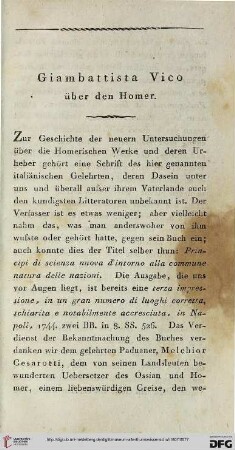 Giambattista Vico
über den Homer.
Zur Geschichte der neuern Untersuchungen
über die Homerischen Werke und deren Ur-
heber gehört eine Schrift des hier genannten
italiänischen Gelehrten, deren Dasein unter
uns und überall außer ihrem Vaterlande auch
den kundigsten Litteratoren unbekannt ist. Der
Verfasser ist es etwas weniger; aber vielleicht
nahm das, was man anderswoher von ihm
wußte oder gehört hatte, gegen sein Buch ein;
auch konnte dies der Titel selber thun: Prin-
cipi di scienza nuova d'intorno alla commune
natura delle nazioni. Die Ausgabe, die uns
vor Augen liegt, ist bereits eine terza impres-
sione, in un gran numero di luoghi corretta,
schiarita e notabilmente accresciuta, in Na-
poli, 1744. zwei BB. in 8. SS. 526. Das Ver-
dienst der Bekanntmachung des Buches ver-
danken wir dem gelehrten Paduaner, Melchior
Cesarotti, dem von seinen Landsleuten be-
wunderten Uebersetzer des Ossian und Ho-
mer, einem liebenswürdigen Greise, den we-
UNIVERSITÄTS-
BIBLIOTHEK
HEIDELBERG
DFG